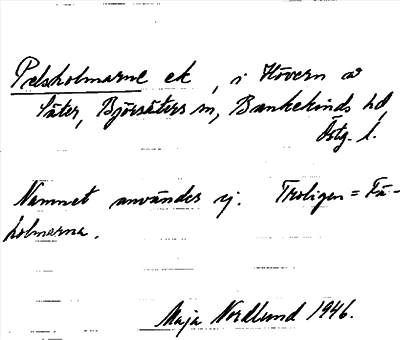 Pelsholmarne ek, i Hövern av
Säter, Björsäters sn, Bankekinds hd
Östg. l.
Namnet användes ej. Troligen = Få-
holmarna.
Maja Nordlund 1946.